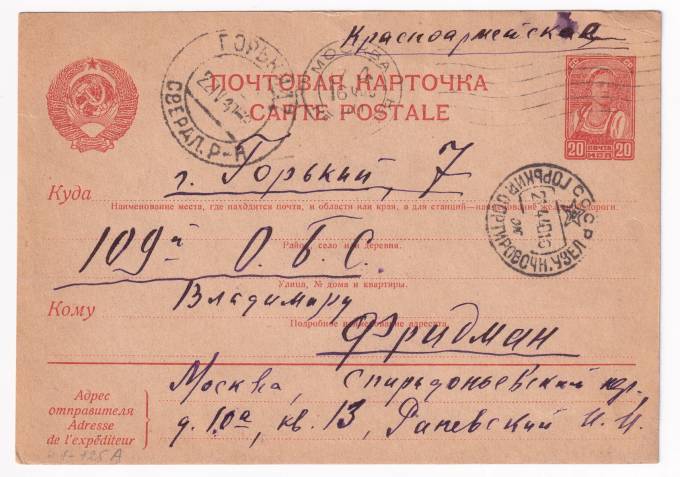 Красноармейская
ПОЧТОВАЯ КАРТОЧКА
CARTE POSTALE
20 ПОЧТА 20
ГОРЬКИЙ
СВЕРДЛ. Р-Н
МОСКВА
СССР
г. Горький, 7
Куда
Наименование места, где находится почта, и области или края, а для станций—наименование желез. дороги.
109й О.Б.С.
Район, село или деревня.
Улица, № дома и квартиры.
Владимиру
Кому
Подробное наименование адресата
Фридман
Адрес
отправителя
Adresse
de l'expéditeur
Москва, Спиридоньевский пер.
д. 10а, кв. 13, Раневский И. И.